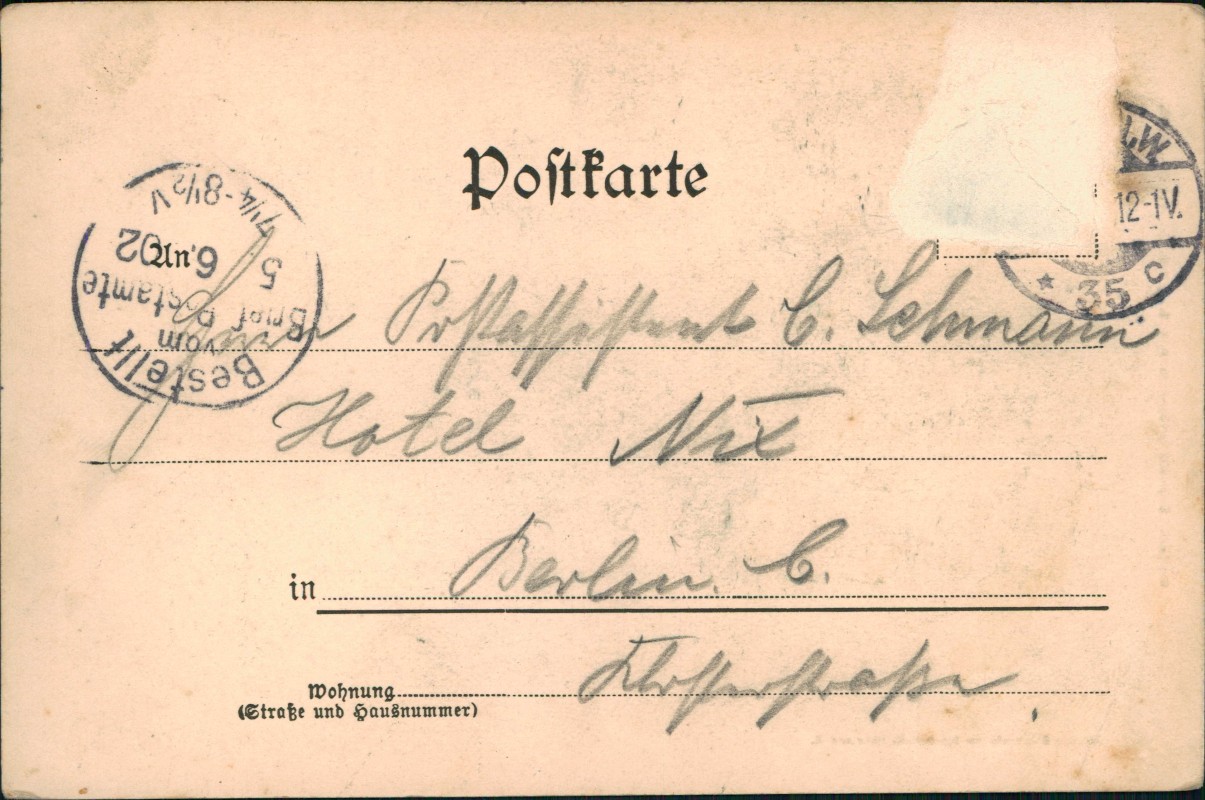 Postkarte
An
Herrn Postassistent C. Lehmann
Hotel Nix
in Berlin. C.
Wohnung Klosterstraße
(Straße und Hausnummer)
Bestellt
vom
Brief Postamte
5
6.02
7¼-8½V
LW
12-1V.
* 35 c